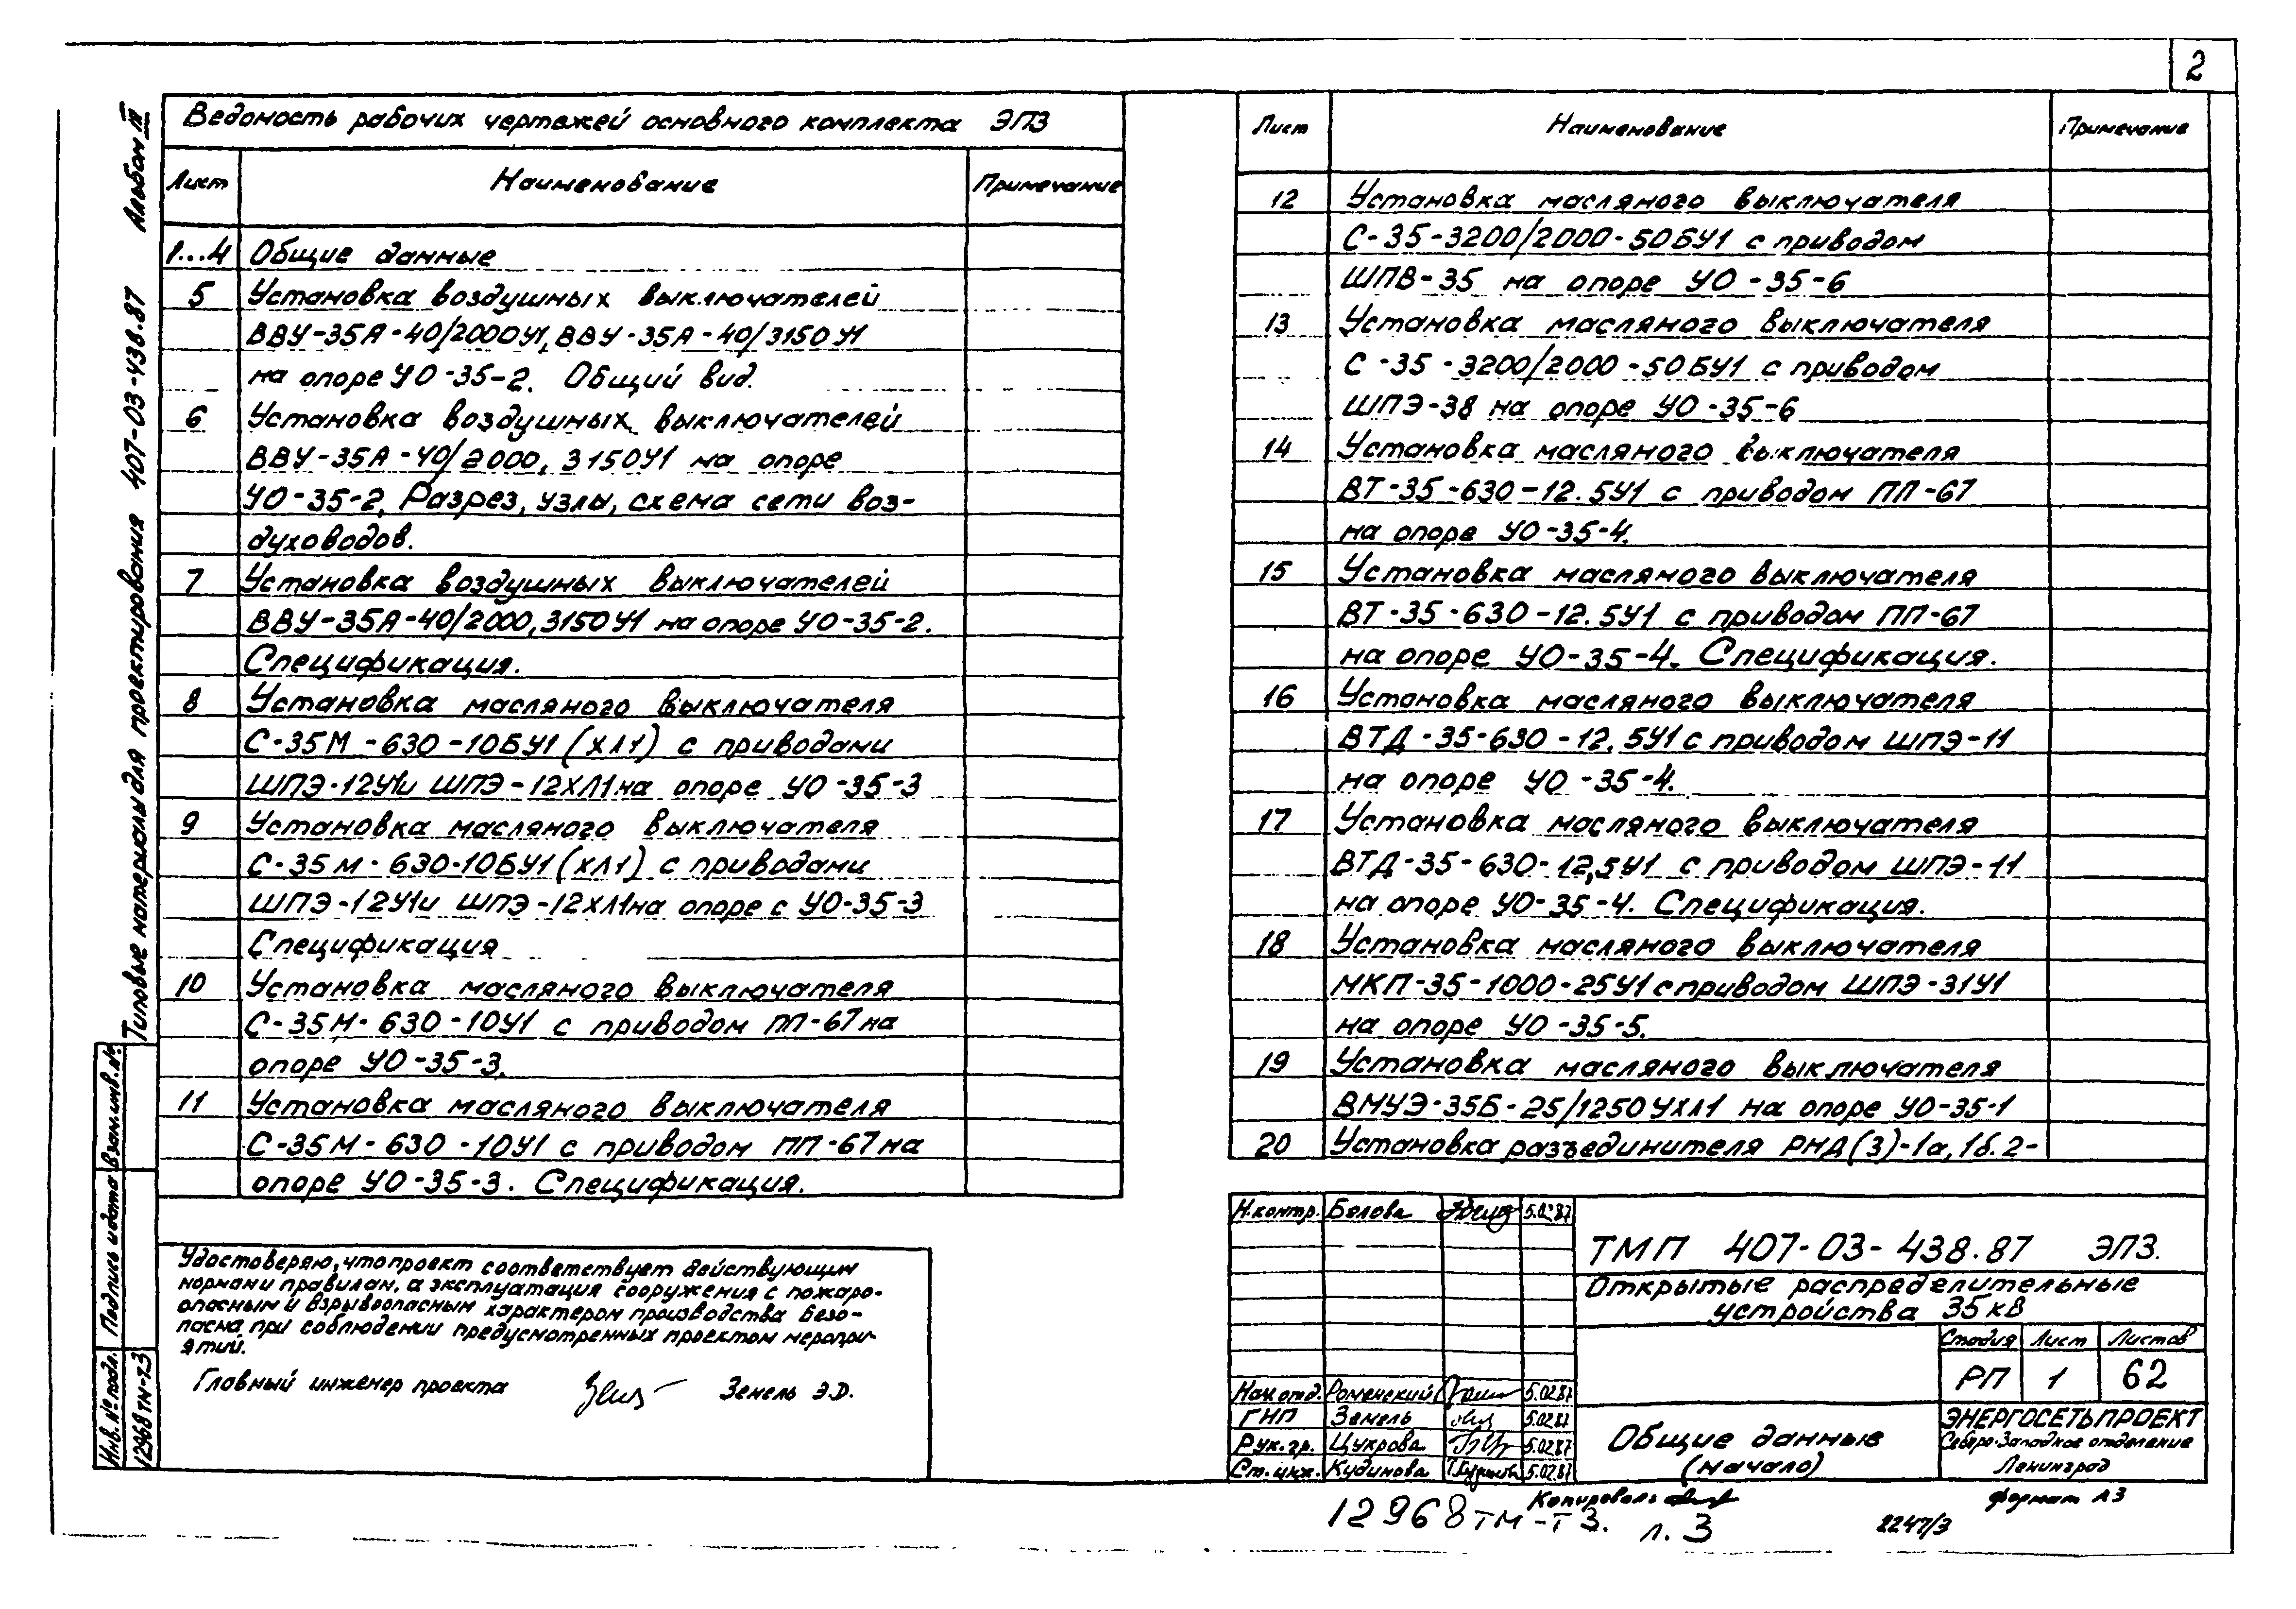 2
Типовые материалы для проектирования 407-03-438.87 Альбом III
Ведомость рабочих чертежей основного комплекта ЭП3
Лист Наименование Примечание
1...4 Общие данные
5 Установка воздушных выключателей
ВВУ-35А-40/2000У1, ВВУ-35А-40/3150У1
на опоре УО-35-2. Общий вид.
6 Установка воздушных выключателей
ВВУ-35А-40/2000, 3150У1 на опоре
УО-35-2. Разрез, узлы, схема сети воз-
духоводов.
7 Установка воздушных выключателей
ВВУ-35А-40/2000, 3150У1 на опоре УО-35-2.
Спецификация.
8 Установка масляного выключателя
С-35М-630-10БУ1 (ХЛ1) с приводами
ШПЭ-12У1и ШПЭ-12ХЛ1на опоре УО-35-3
9 Установка масляного выключателя
С-35М-630-10БУ1 (ХЛ1) с приводами
ШПЭ-12У1и ШПЭ-12ХЛ1на опоре с УО-35-3
Спецификация
10 Установка масляного выключателя
С-35М-630-10У1 с приводом ПП-67 на
опоре УО-35-3.
11 Установка масляного выключателя
С-35М-630-10У1 с приводом ПП-67 на
опоре УО-35-3. Спецификация.
Лист Наименование Примечание
12 Установка масляного выключателя
С-35-3200/2000-50БУ1 с приводом
ШПВ-35 на опоре УО-35-6
13 Установка масляного выключателя
С-35-3200/2000-50БУ1 с приводом
ШПЭ-38 на опоре УО-35-6
14 Установка масляного выключателя
ВТ-35-630-12.5У1 с приводом ПП-67
на опоре УО-35-4.
15 Установка масляного выключателя
ВТ-35-630-12.5У1 с приводом ПП-67
на опоре УО-35-4. Спецификация.
16 Установка масляного выключателя
ВТД-35-630-12,5У1 с приводом ШПЭ-11
на опоре УО-35-4.
17 Установка масляного выключателя
ВТД-35-630-12,5У1 с приводом ШПЭ-11
на опоре УО-35-4. Спецификация.
18 Установка масляного выключателя
МКП-35-1000-25У1 с приводом ШПЭ-31У1
на опоре УО-35-5.
19 Установка масляного выключателя
ВМУЭ-35Б-25/1250УХЛ1 на опоре УО-35-1
20 Установка разъединителя РНД(3)-1а,1б.2-
Удостоверяю, что проект соответствует действующим
нормам и правилам, а эксплуатация сооружения с пожаро-
опасным и взрывоопасным характером производства безо-
пасна при соблюдении предусмотренных проектом меропри-
ятий.
Главный инженер проекта Земель Э.Д.
Взам.инв.№
Подпись и дата
Инв.№ подл.
12968тм-т3
Н.контр. Белова 5.02.87
ТМП 407-03-438.87 ЭП3.
Открытые распределительные
устройства 35кВ
Стадия Лист Листов
РП 1 62
Нач.отд. Роменский 5.02.87
ГИП Земель 5.02.87
Рук.гр. Цукрова 5.02.87
Ст.инж. Кудинова 5.02.87
Общие данные
(начало)
ЭНЕРГОСЕТЬПРОЕКТ
Северо-Западное отделение
Ленинград
Копировал
формат А3
12968тм-т3. л. 3
2247/3